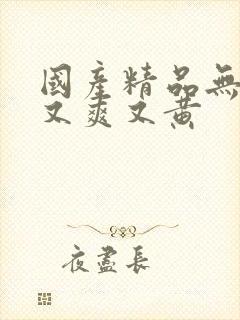 國產精品無
又爽又黄
夜盡長